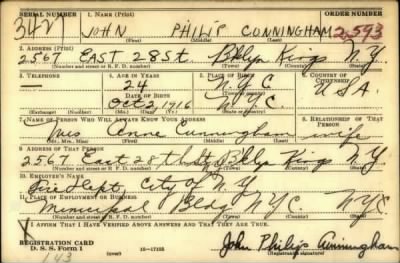 SERIAL NUMBER 1. NAME (Print) ORDER NUMBER
3421 JOHN PHILIP CUNNINGHAM 2,593
(First) (Middle) (Last)
2. ADDRESS (Print)
2567 EAST 28 St. Bklyn Kings N.Y.
(Number and street or R. F. D. number) (Town) (County) (State)
3. TELEPHONE 4. AGE IN YEARS 5. PLACE OF BIRTH 6. COUNTRY OF CITIZENSHIP
— 24 N.Y.C. USA.
DATE OF BIRTH (Town or county)
Oct 2, 1916 N.Y.C.
(Exchange) (Number) (Mo.) (Day) (Yr.) (State or country)
7. NAME OF PERSON WHO WILL ALWAYS KNOW YOUR ADDRESS 8. RELATIONSHIP OF THAT PERSON
Mrs Anne Cunningham wife
(Mr., Mrs., Miss) (First) (Middle) (Last)
9. ADDRESS OF THAT PERSON
2567 East 28th St Bklyn Kings N.Y.
(Number and street or R. F. D. number) (Town) (County) (State)
10. EMPLOYER'S NAME
Fire Dept, City of N.Y.
11. PLACE OF EMPLOYMENT OR BUSINESS
Municipal Bldg NYC NYC
(Number and street or R. F. D. number) (Town) (County) (State)
I AFFIRM THAT I HAVE VERIFIED ABOVE ANSWERS AND THAT THEY ARE TRUE.
REGISTRATION CARD
D. S. S. Form 1 (over) 16—17105 John Philip Cunningham
(Registrant's signature)